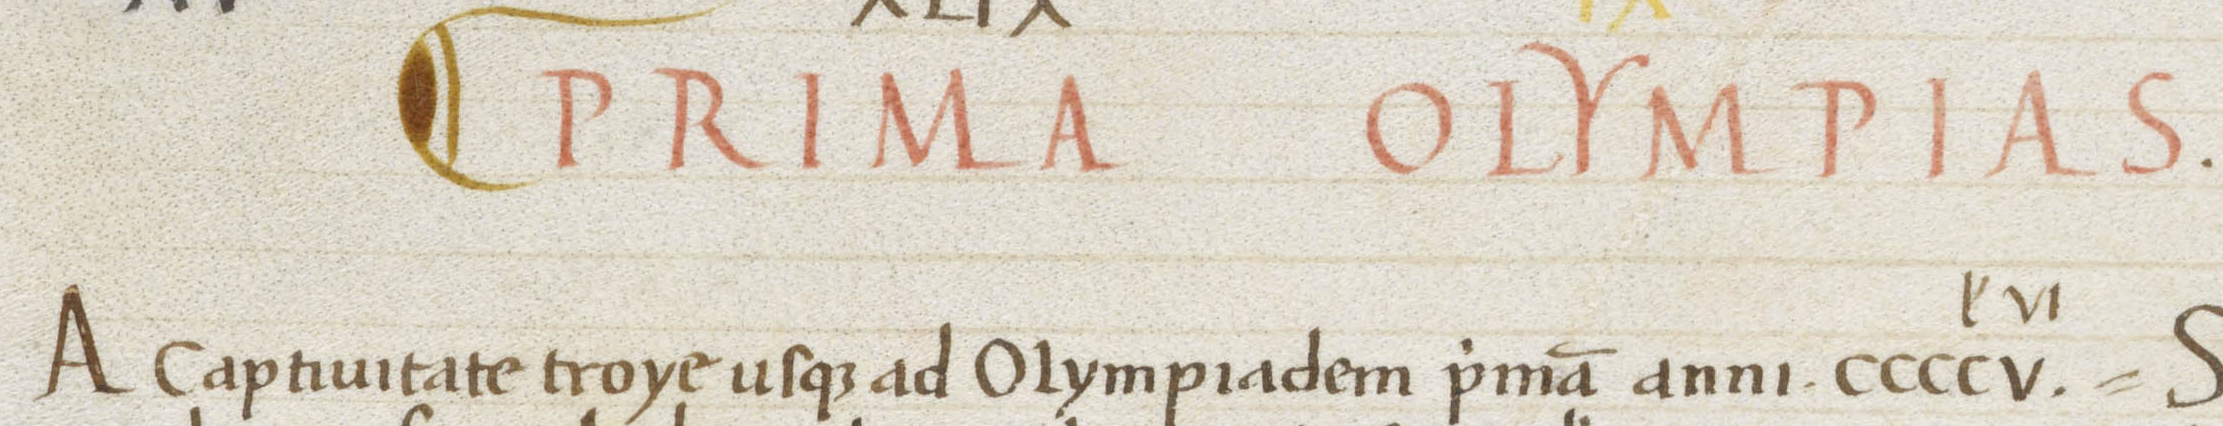 XLIX IX
PRIMA OLYMPIAS.
l' VI
A Captiuitate troye usqꝫ ad Olympiadem pͥmā anni. CCCCV. = S